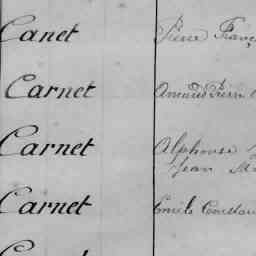 Canet Pierre Franç
Carnet Amédée Pierre
Carnet Alphonse
Jean
Carnet Emile Constan